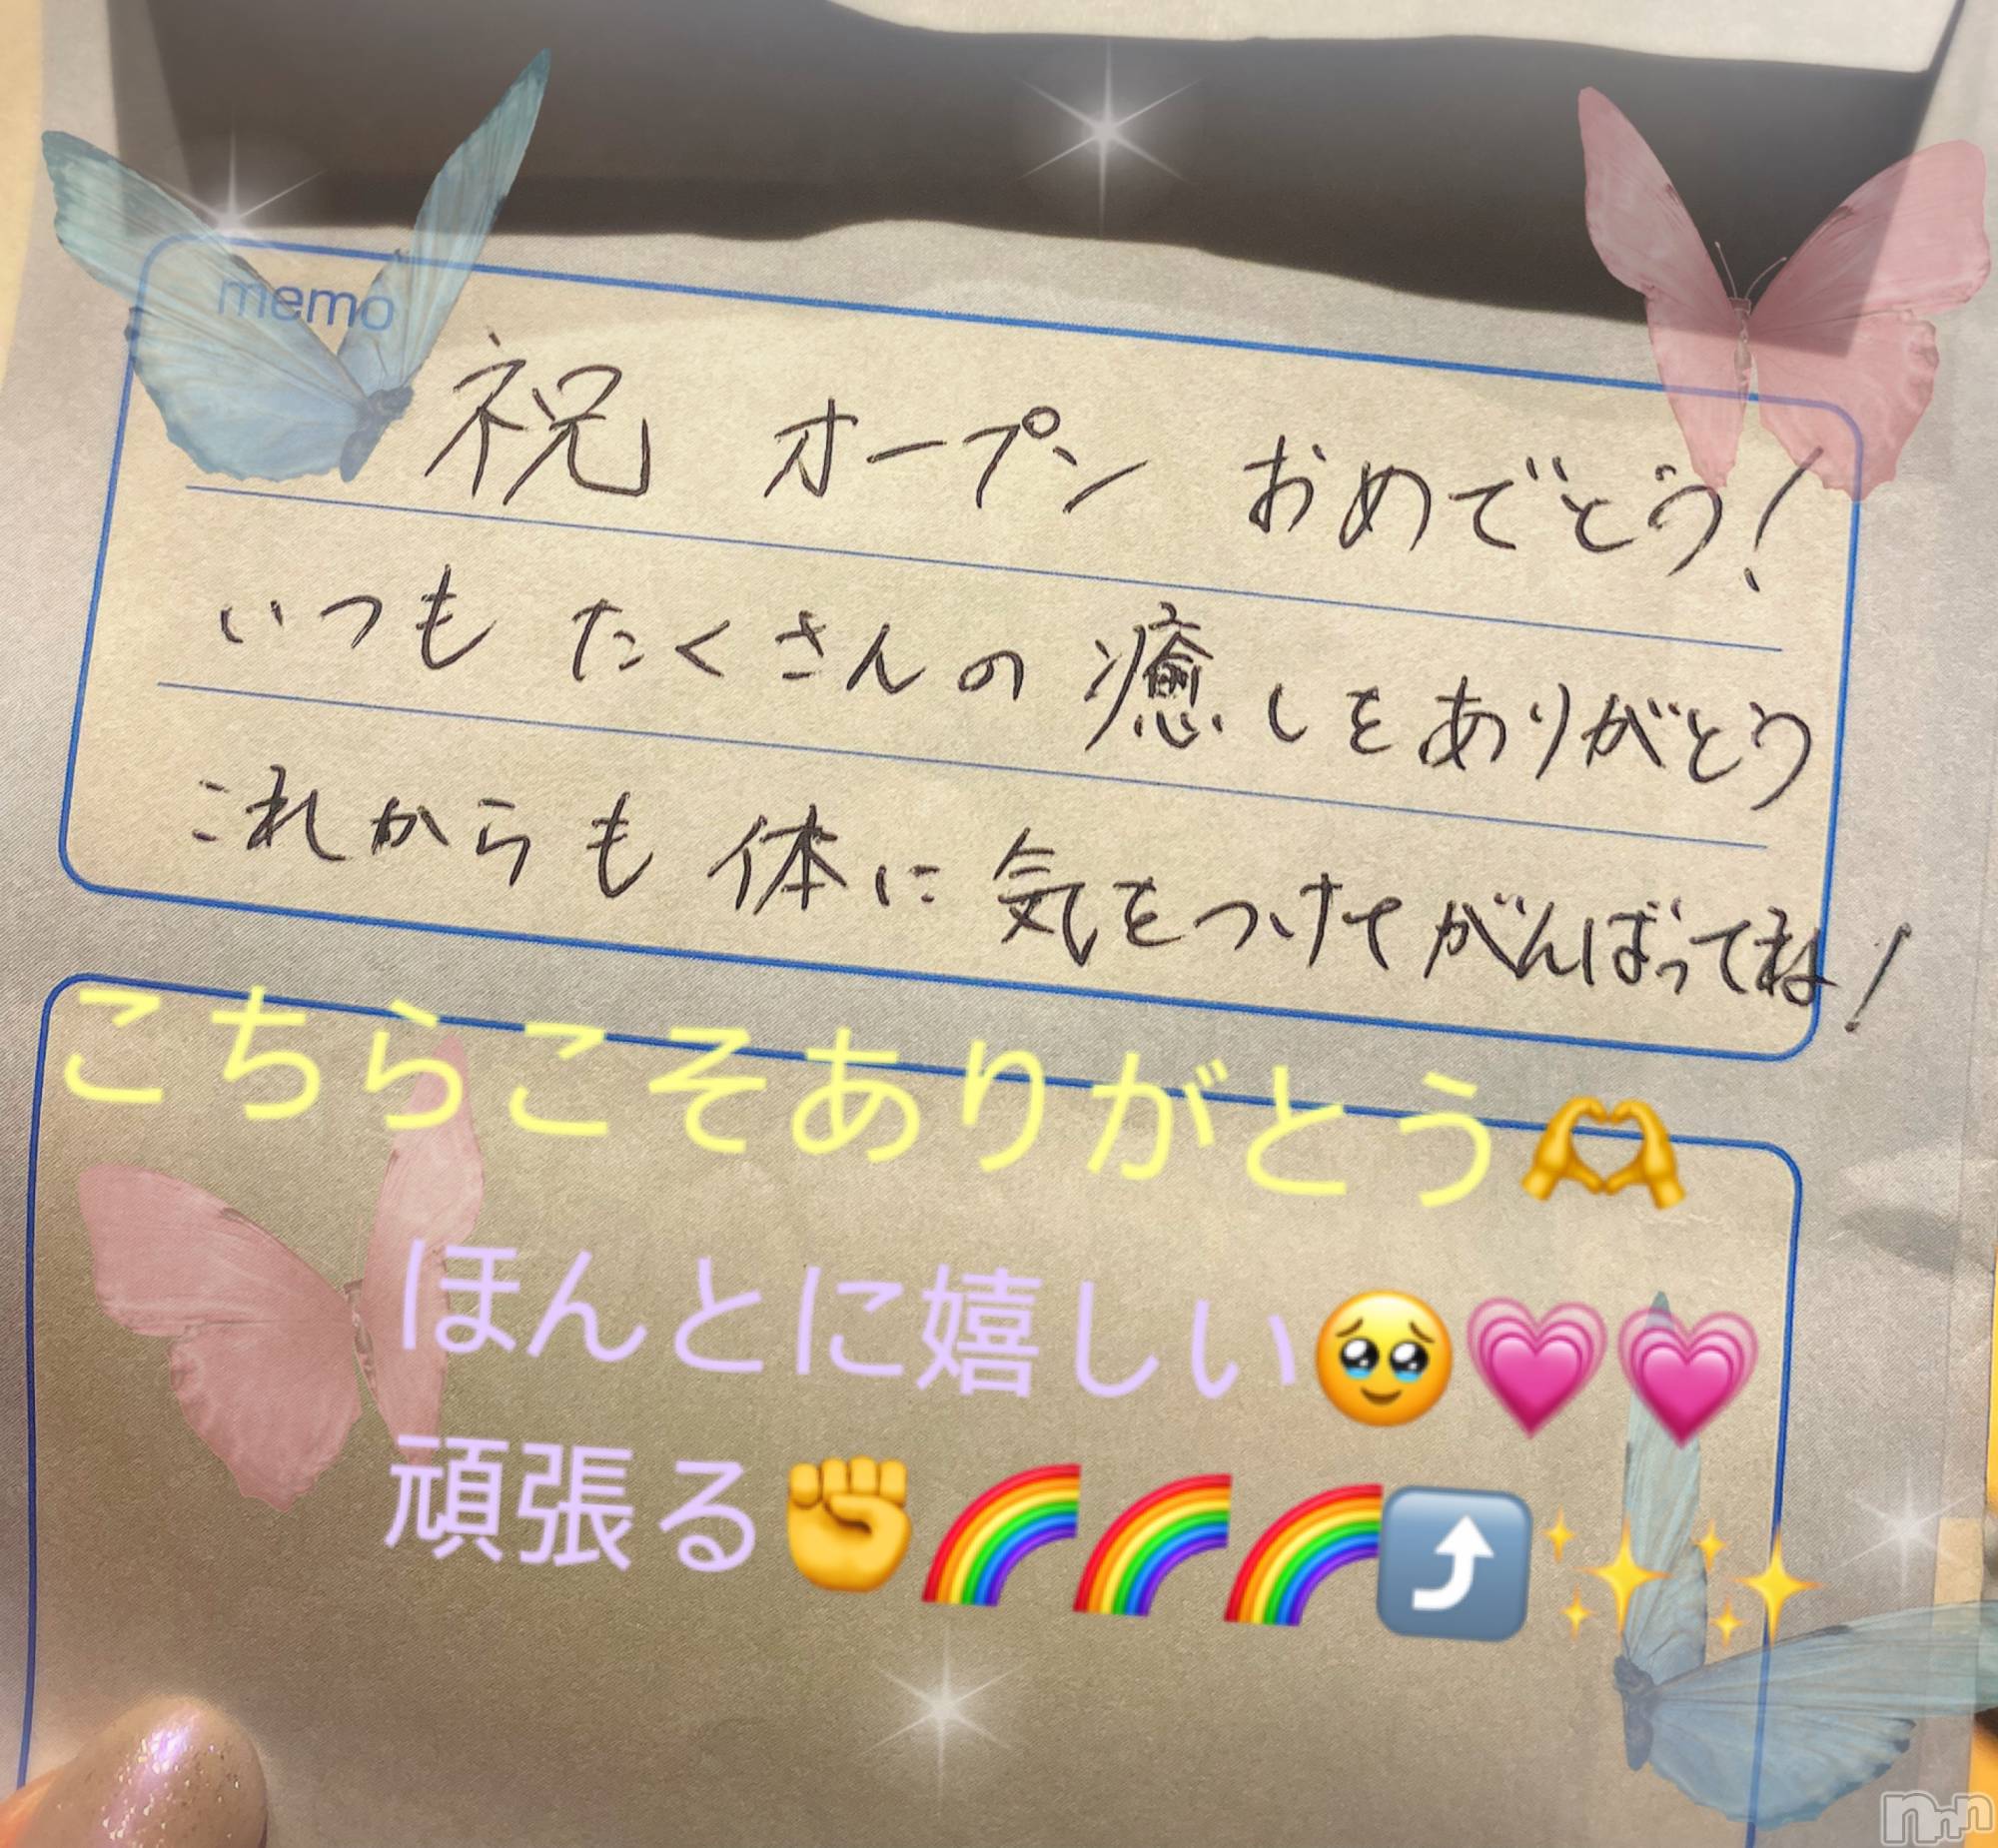 memo
祝 オープン おめでとう!
いつも たくさんの 癒しをありがとう
これからも 体に 気をつけてがんばってね!
こちらこそありがとう🫶
ほんとに嬉しい🥹💗💗
頑張る✊🌈🌈🌈⤴️✨✨
nnn